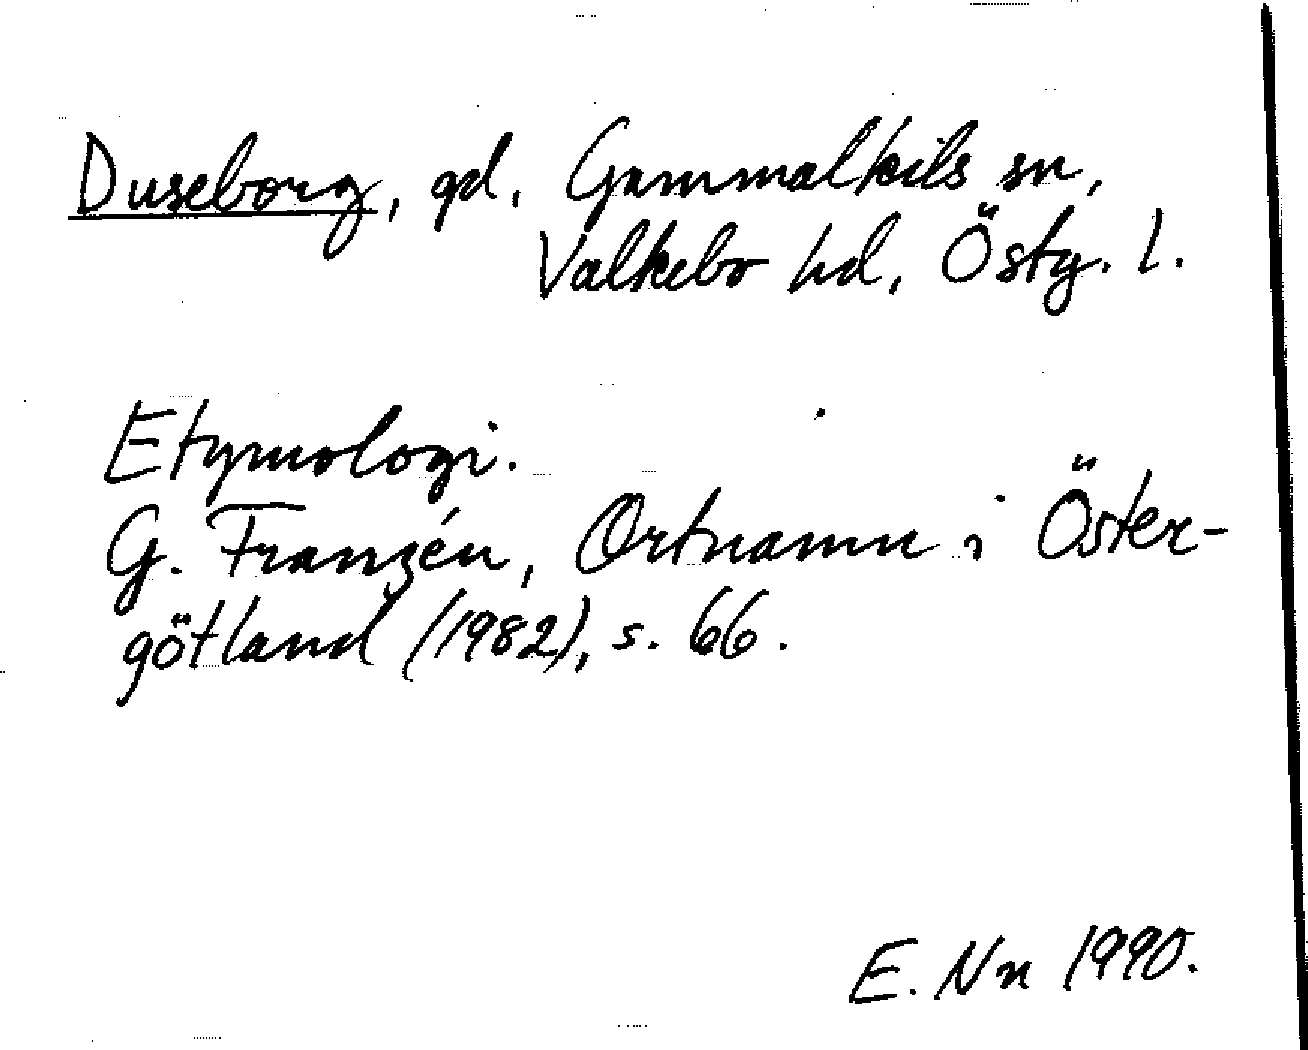 Duseborg, gd. Gammalkils sn,
Valkebo hd, Östg. l.
Etymologi.
G. Franzén, Ortnamn i Öster-
götland (1982), s. 66.
E. Nn 1990.